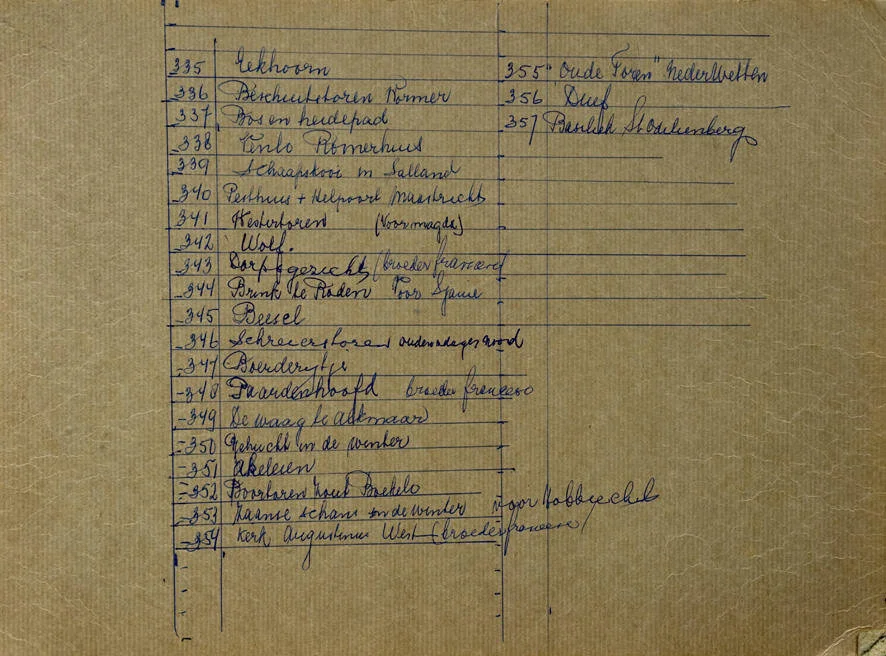 335 Eekhoorn
336 Beschuitstoren Wormer
337 Bos en heidepad
338 Venlo Römerhuis
339 Schaapskooi in Salland
340 Pesthuis + Helpoort Maastricht
341 Kestertoren (Voor magda)
342 Wolf.
343 Dorpsgezicht (broeder
344 Brink te Roden Voor Sjanie
345 Beesel
346 Schreierstoren
347 Boerderijtje
348 Paardenhoofd broeder francesco
349 De waag te Alkmaar
350 Gehucht in de winter
351 Akeleien
352 Boortoren Zout Boekelo
353 Zaanse schans in de winter voor
354 Kerk Augustinus West (broeder francesco)
355 "Oude Toren" NederWetten
356 Duif
357 Basiliek St Odiliënberg